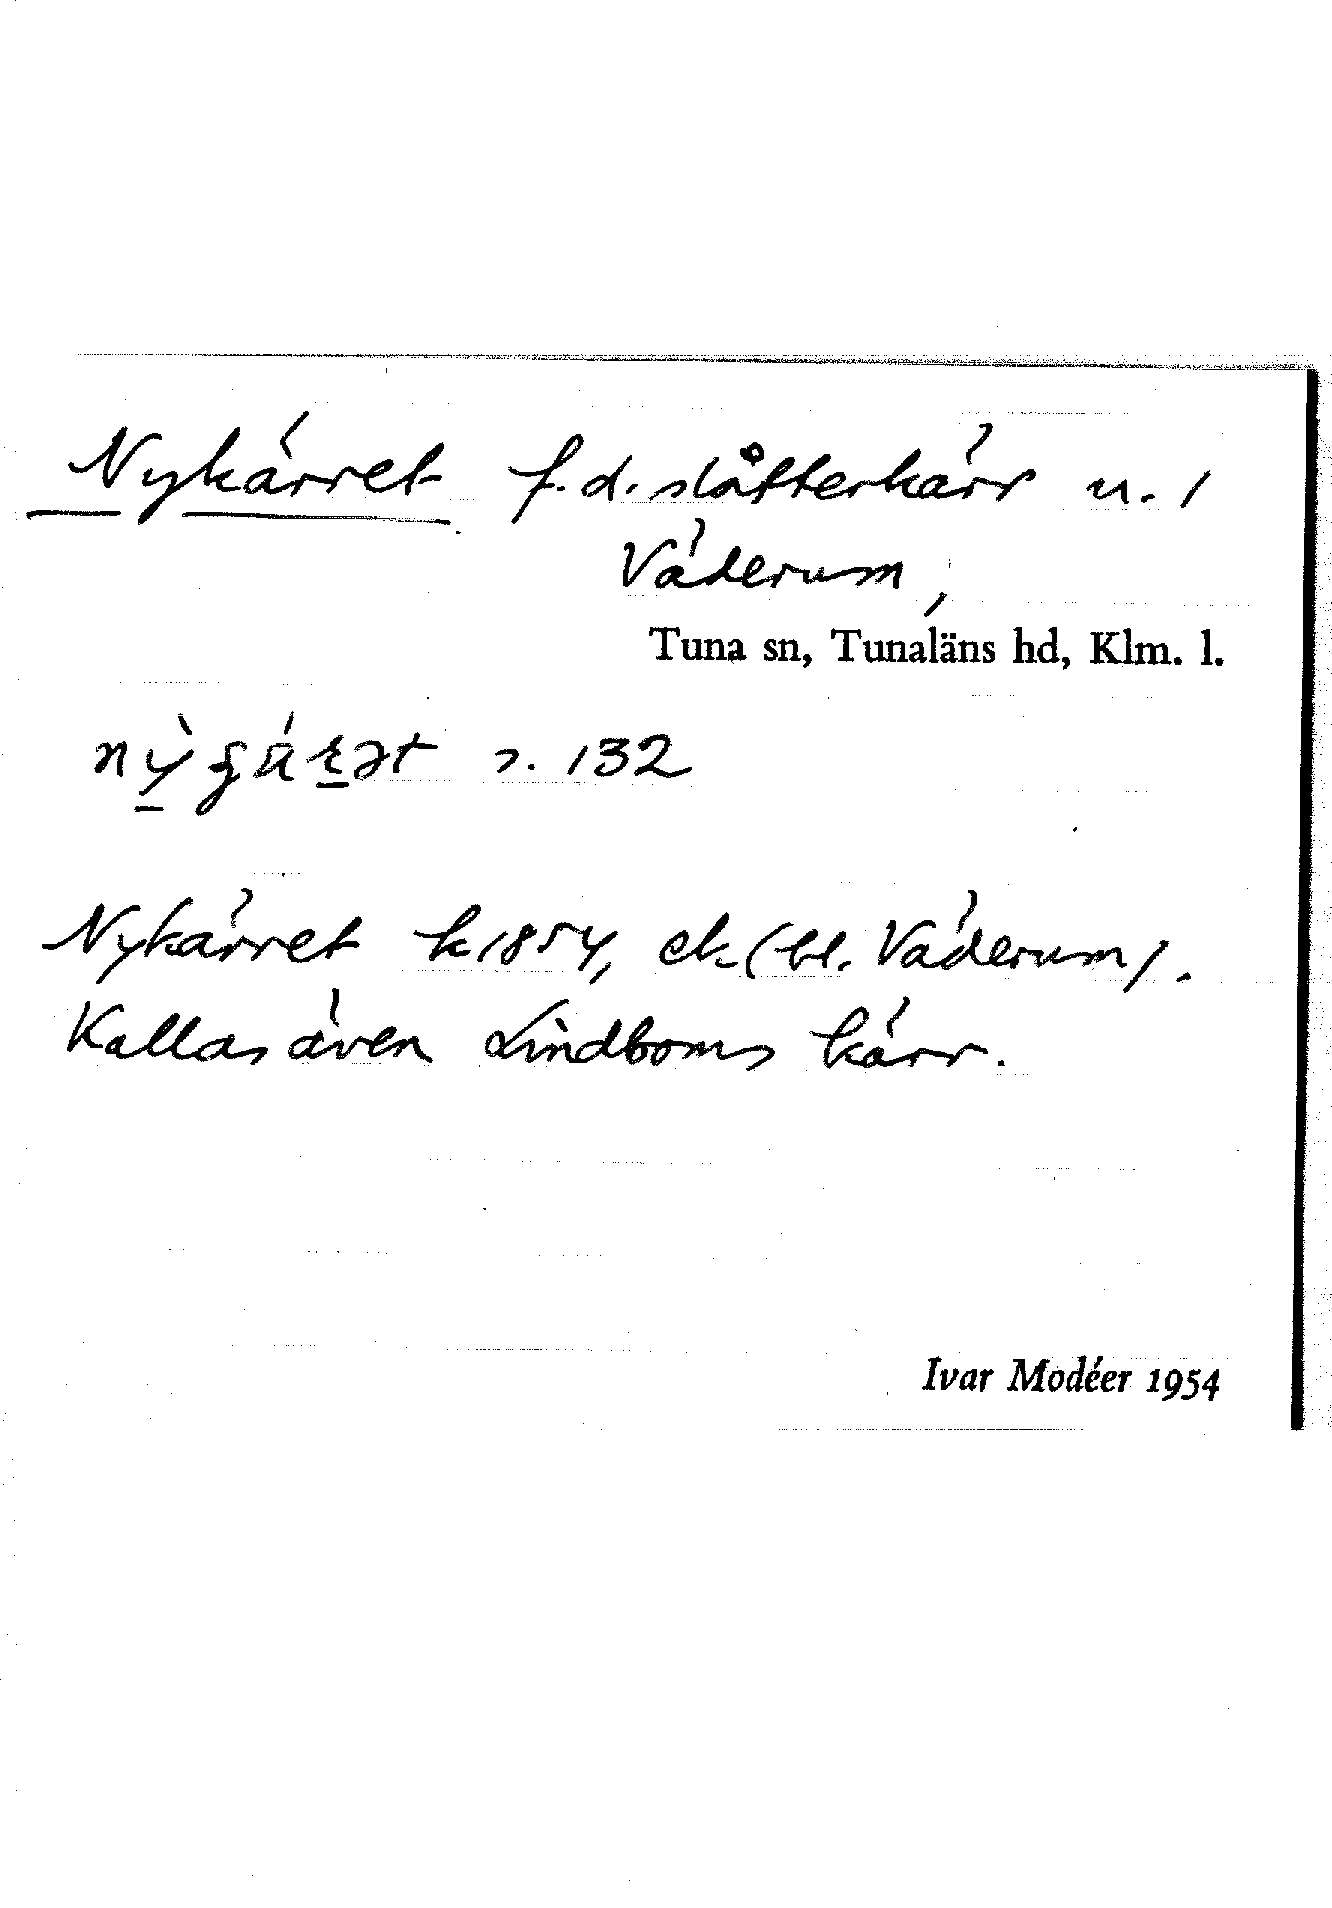 Nykärret f.d. slåtterkärr u. 1
Väderum,
Tuna sn, Tunaläns hd, Klm. l.
s. 132
Nykärret k 1854, ek (bl. Väderum).
Kallas även Lindboms kärr.
Ivar Modéer 1954